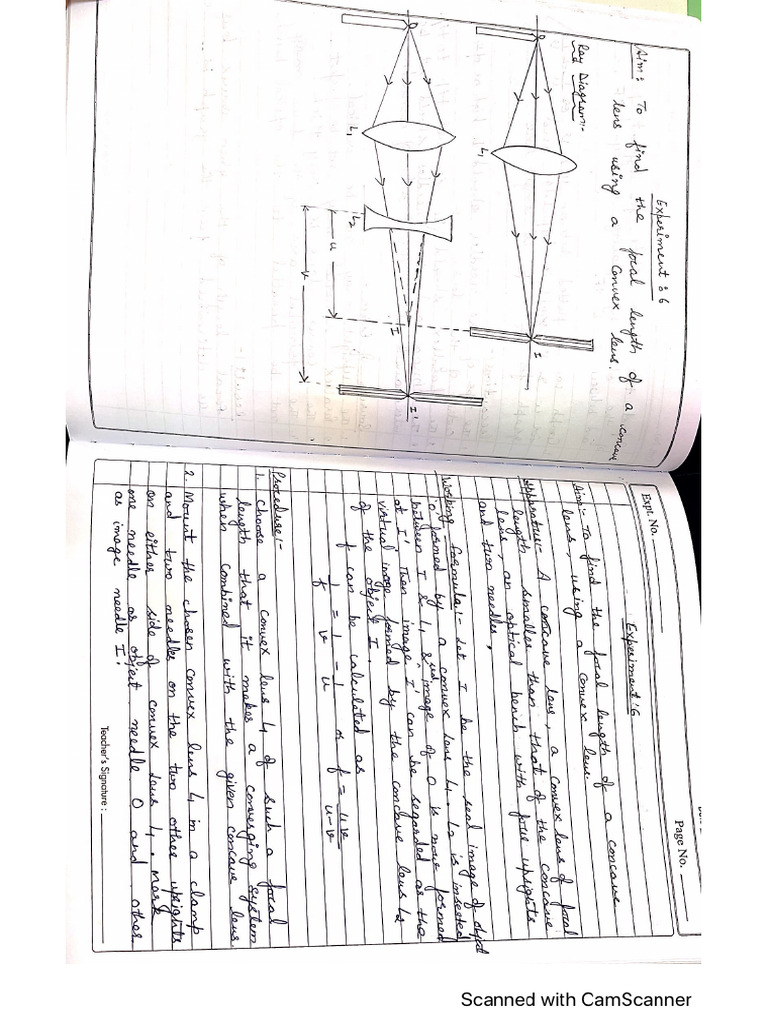 Experiment : 6
Aim : To find the focal length of a concave
lens using a convex lens.
Ray Diagram:-
O
L1
I
O
L1
L2
I
I'
u
v
Expt. No.
Page No.
Experiment : 6
Aim :- To find the focal length of a concave
lens, using a convex lens.
Apparatus:- A concave lens, a convex lens of focal
length smaller than that of the concave
lens, an optical bench with four uprights
and two needles,
Working formula:- Let I be the real image of object
O formed by a convex lens L1. L2 is inserted
between I & L1 & image of O is now formed
at I'. Then image I' can be regarded as the
virtual image formed by the concave lens L2
of the object I.
f can be calculated as
1/f = 1/v - 1/u or f = uv/u-v
Procedure:-
1. Choose a convex lens L1 of such a focal
length that it makes a converging system
when combined with the given concave lens
2. Mount the chosen convex lens L1 in a clamp
and two needles on the two other uprights
on either side of convex lens L1. Mark
one needle as object needle O and other
as image needle I'.
Teacher's Signature :
Scanned with CamScanner